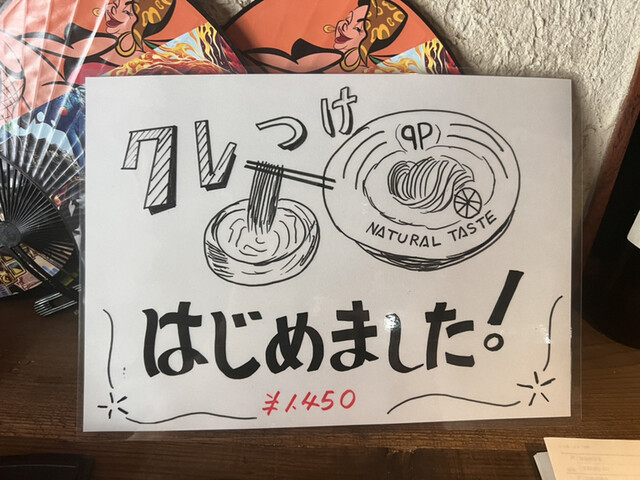 クレつけ
(qP)
NATURAL TASTE
はじめました!
¥1.450